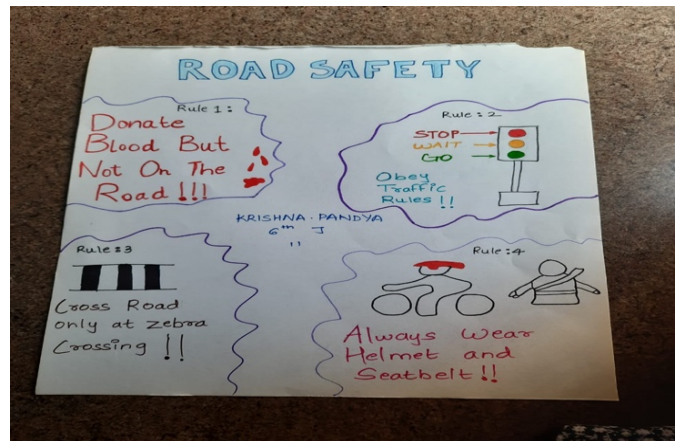 ROAD SAFETY
Rule 1:
Donate
Blood But
Not On The
Road !!!
Rule: 2
STOP
WAIT
GO
Obey
Traffic
Rules !!
KRISHNA. PANDYA
6th J
"
Rule:3
Cross Road
only at zebra
Crossing !!
Rule:4
Always wear
Helmet and
Seatbelt!!